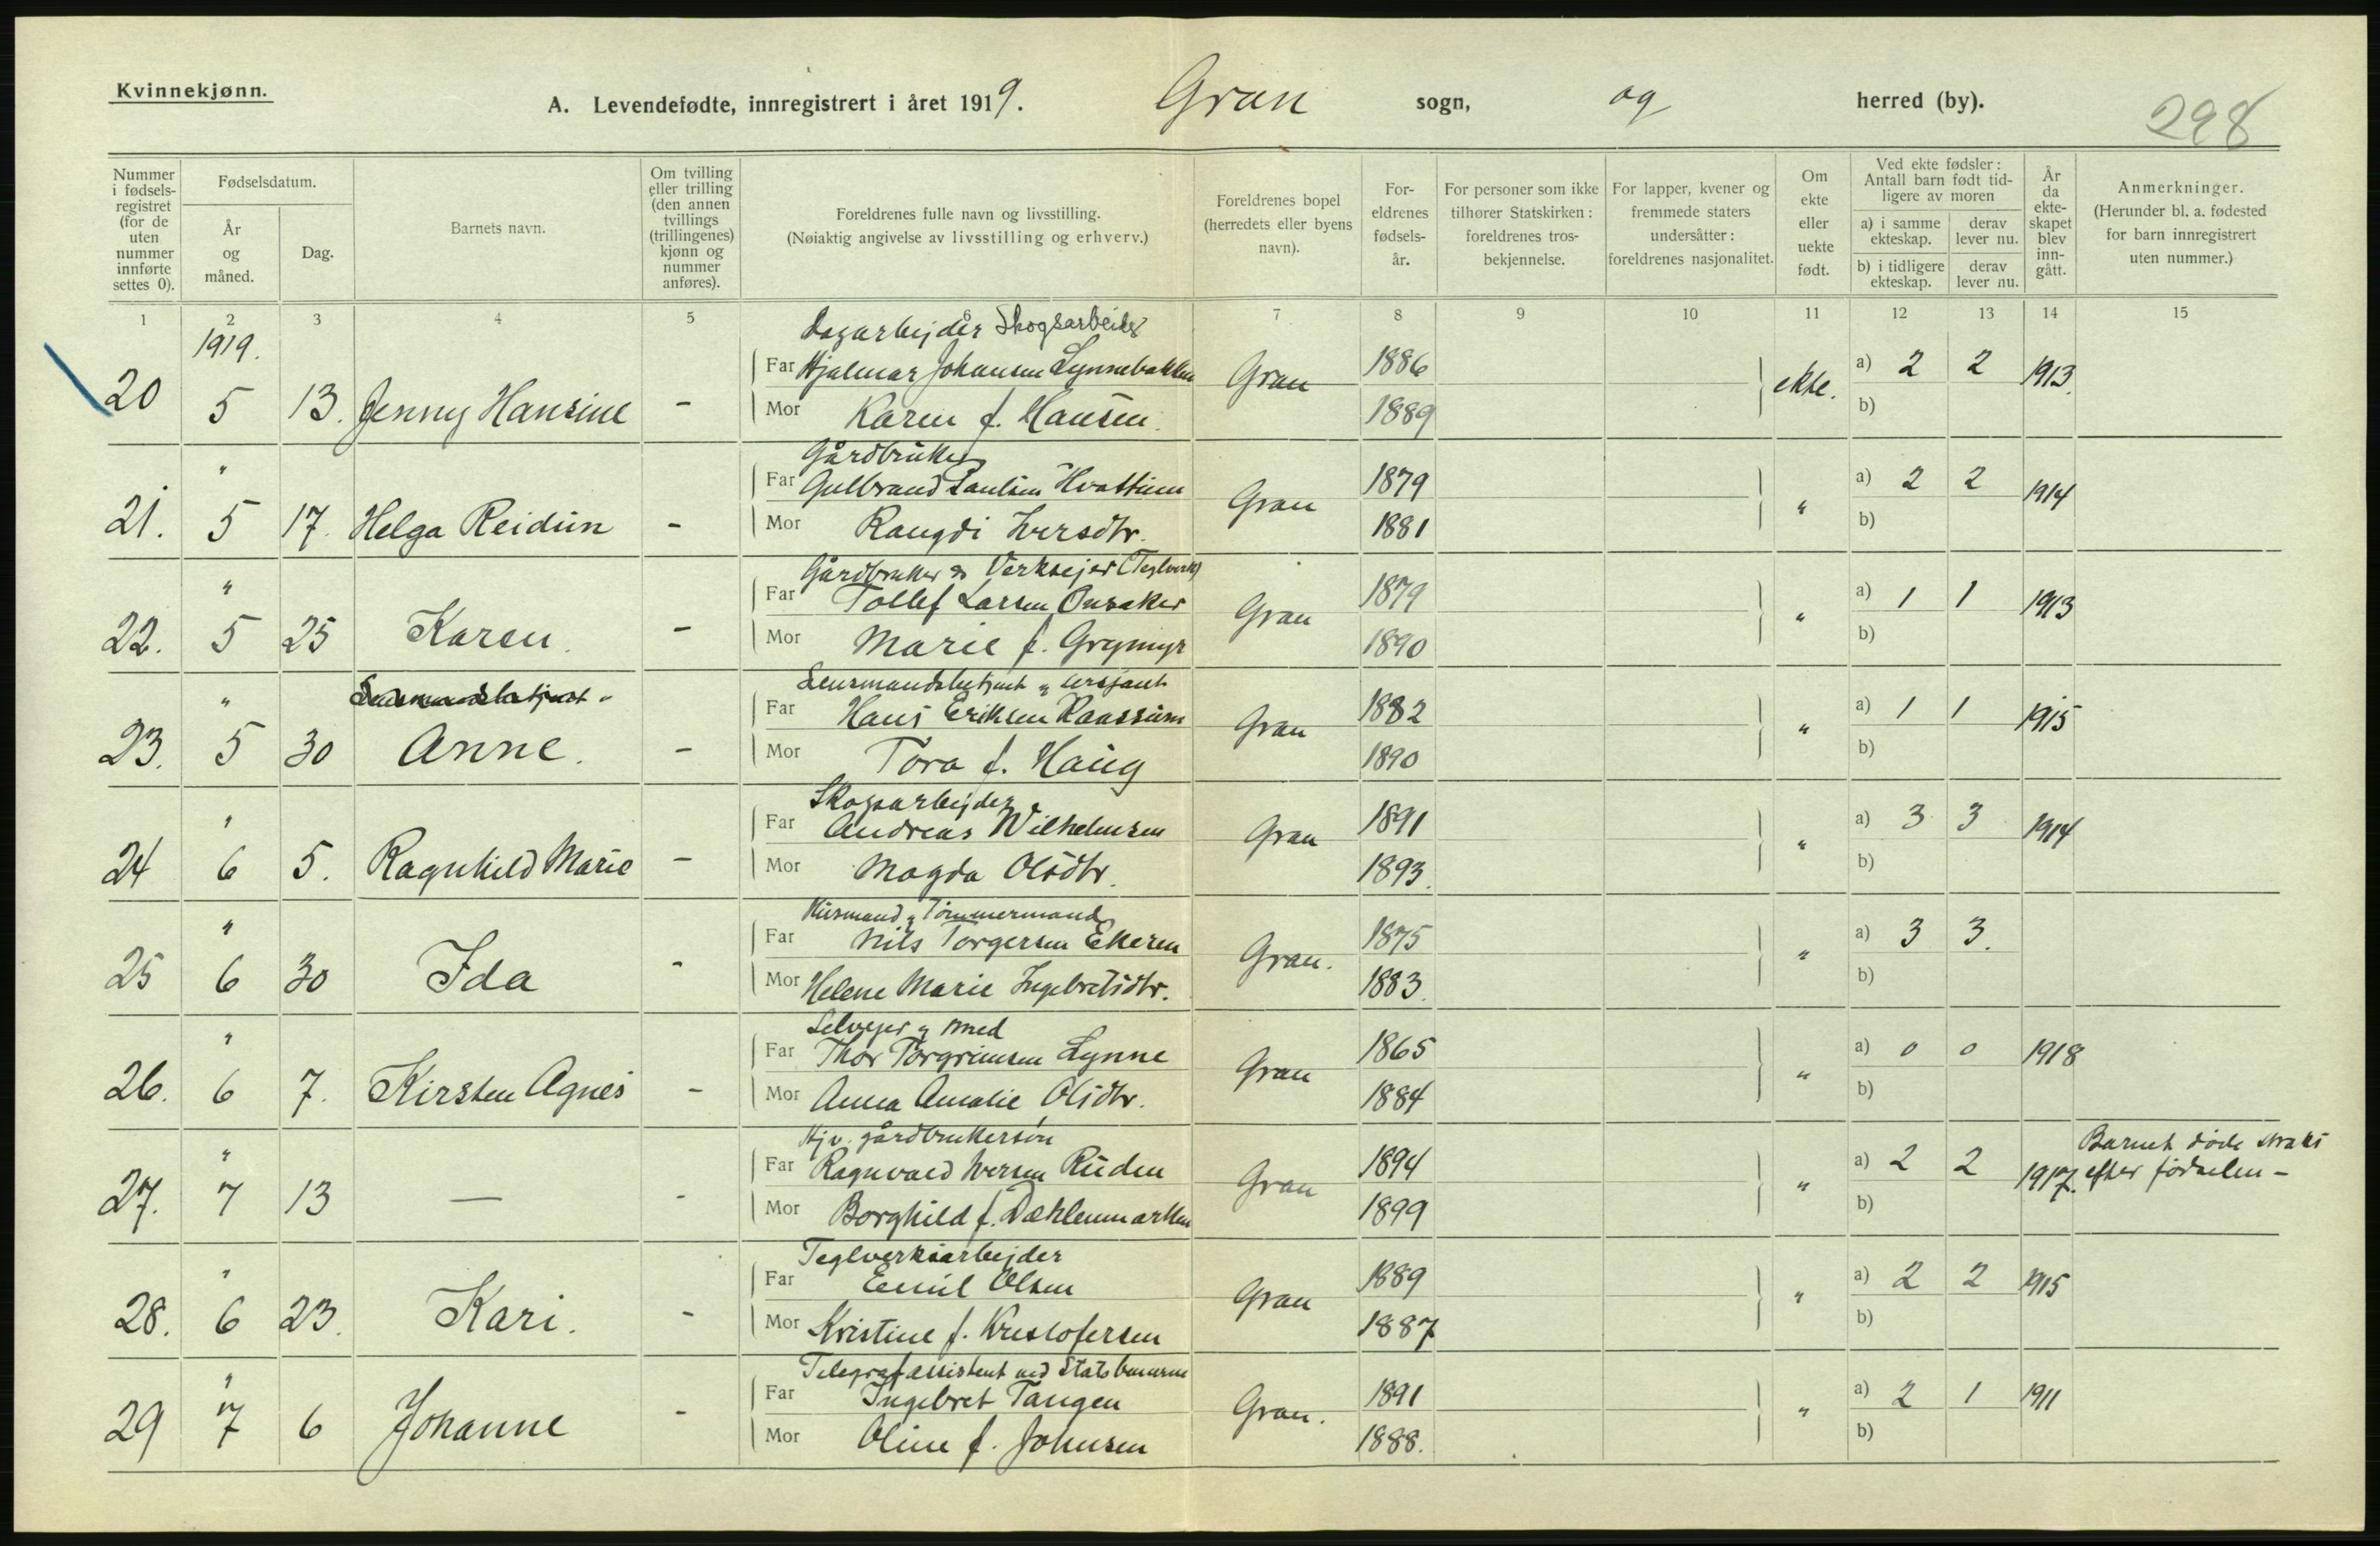 Kvinnekjønn.
A. Levendefødte, innregistrert i året 1919. Gran sogn, og herred (by). 298
Nummer i fødsels- registret (for de uten nummer innførte settes 0).
Fødselsdatum.
År og måned.
Dag.
Barnets navn.
Om tvilling eller trilling (den annen tvillings (trillingenes) kjønn og nummer anføres).
Foreldrenes fulle navn og livsstilling.
(Nøiaktig angivelse av livsstilling og erhverv.)
Foreldrenes bopel (herredets eller byens navn).
For- eldrenes fødsels- år.
For personer som ikke tilhører Statskirken: foreldrenes tros- bekjennelse.
For lapper, kvener og fremmede staters undersåtter: foreldrenes nasjonalitet.
Om ekte eller uekte født.
Ved ekte fødsler: Antall barn født tid- ligere av moren
a) i samme ekteskap. derav lever nu.
b) i tidligere ekteskap. derav lever nu.
År da ekte- skapet blev inn- gått.
Anmerkninger.
(Herunder bl. a. fødested for barn innregistrert uten nummer.)
1 2 3 4 5 7 8 9 10 11 12 13 14 15
1919.
Dagarbejder Skogsarbeider
Far Hjalmar Johansen Lynnebakken Gran 1886 ekte. a) 2 2 1913.
20 5 13. Jenny Hansine -
Mor Karen f. Hansen. 1889 b)
Gårdbruker
" Far Gulbrand Paulsen Hvattum Gran 1879 " a) 2 2 1914
21. 5 17. Helga Reidun -
Mor Rangdi Iversdtr. 1881 b)
Gårdbruker og Verksejer (Teglverk)
" Far Tollef Larsen Onsaker Gran 1879 " a) 1 1 1913
22. 5 25 Karen -
Mor Marie f. Grymyr 1890 b)
Lensmandsbetjent & sersjant
" Far Hans Eriksen Raassum Gran 1882 " a) 1 1 1915
23. 5 30 Anne. -
Mor Tora f. Haug 1890 b)
Skogsarbejder
" Far Andreas Wilhelmsen Gran 1891 " a) 3 3 1914
24 6 5. Ragnhild Marie -
Mor Magda Olsdtr. 1893. b)
Husmand & Tømmermand
" Far Nils Torgersen Ekeren Gran. 1875 " a) 3 3.
25 6 30 Ida -
Mor Helene Marie Ingebretsdtr. 1883. b)
Selvejer & smed
" Far Thor Torgrimsen Lynne Gran 1865 " a) 0 0 1918
26. 6 7. Kirsten Agnes -
Mor Anna Amalie Olsdtr. 1884 b)
Hjv. gårdbrukersøn
" Far Ragnvald Iversen Ruden Gran 1894 " a) 2 2 1917. Barnet døde straks efter fødselen -
27. 7 13 — -
Mor Borghild f. Dæhlenmarken 1899 b)
Teglverksarbejder
" Far Emil Olsen Gran 1889 " a) 2 2 1915
28. 6 23. Kari. -
Mor Kristine f. Kristofersen 1887 b)
Telegrafassistent ved Statsbanerne
" Far Ingebret Tangen Gran. 1891 " a) 2 1 1911
29 7 6 Johanne -
Mor Oline f. Johnsen 1888. b)